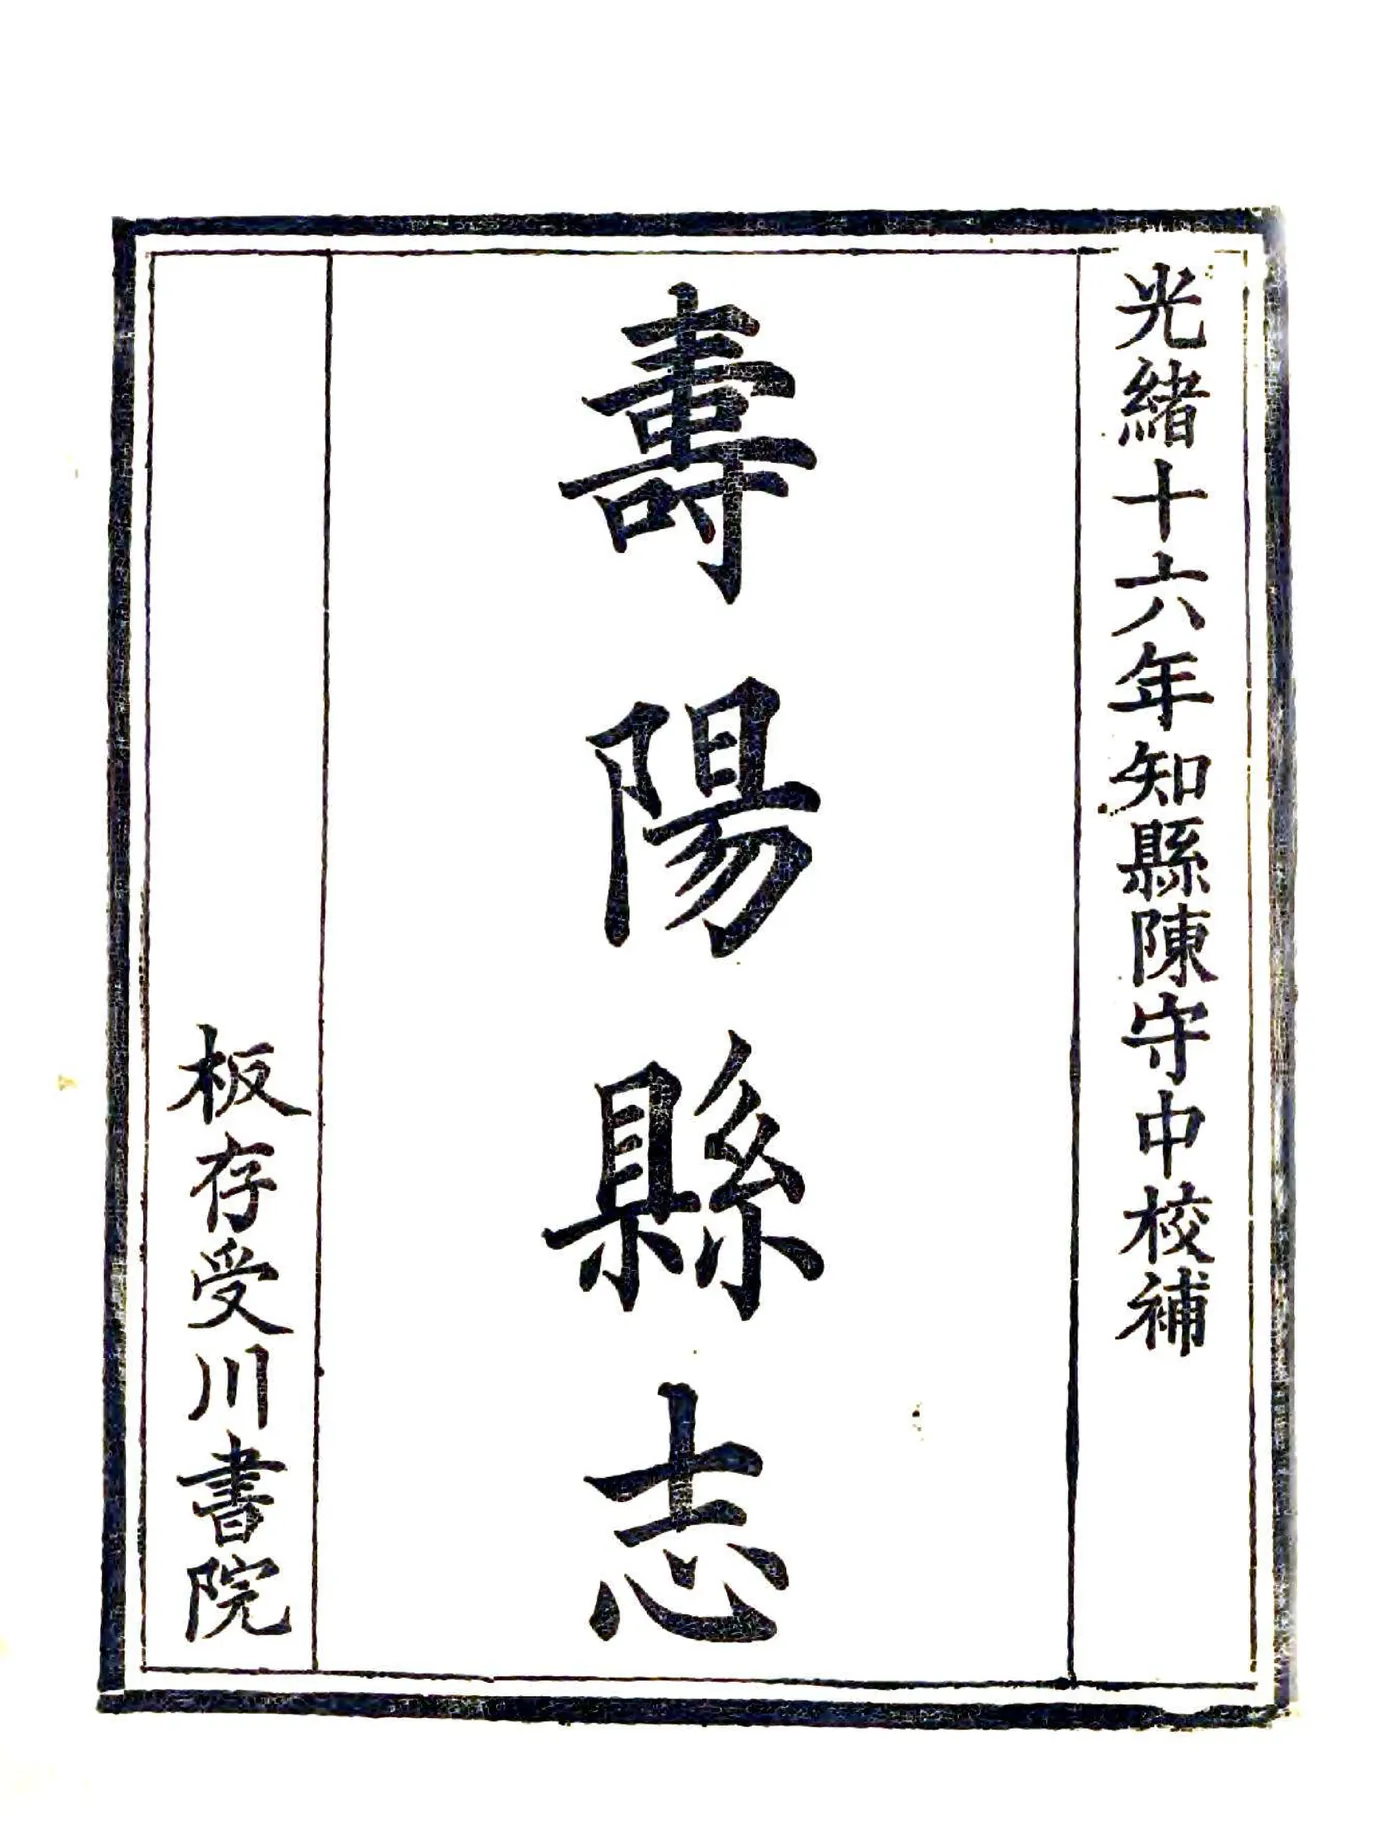 光緒十六年知縣陳守中校補
壽陽縣志
板存受川書院